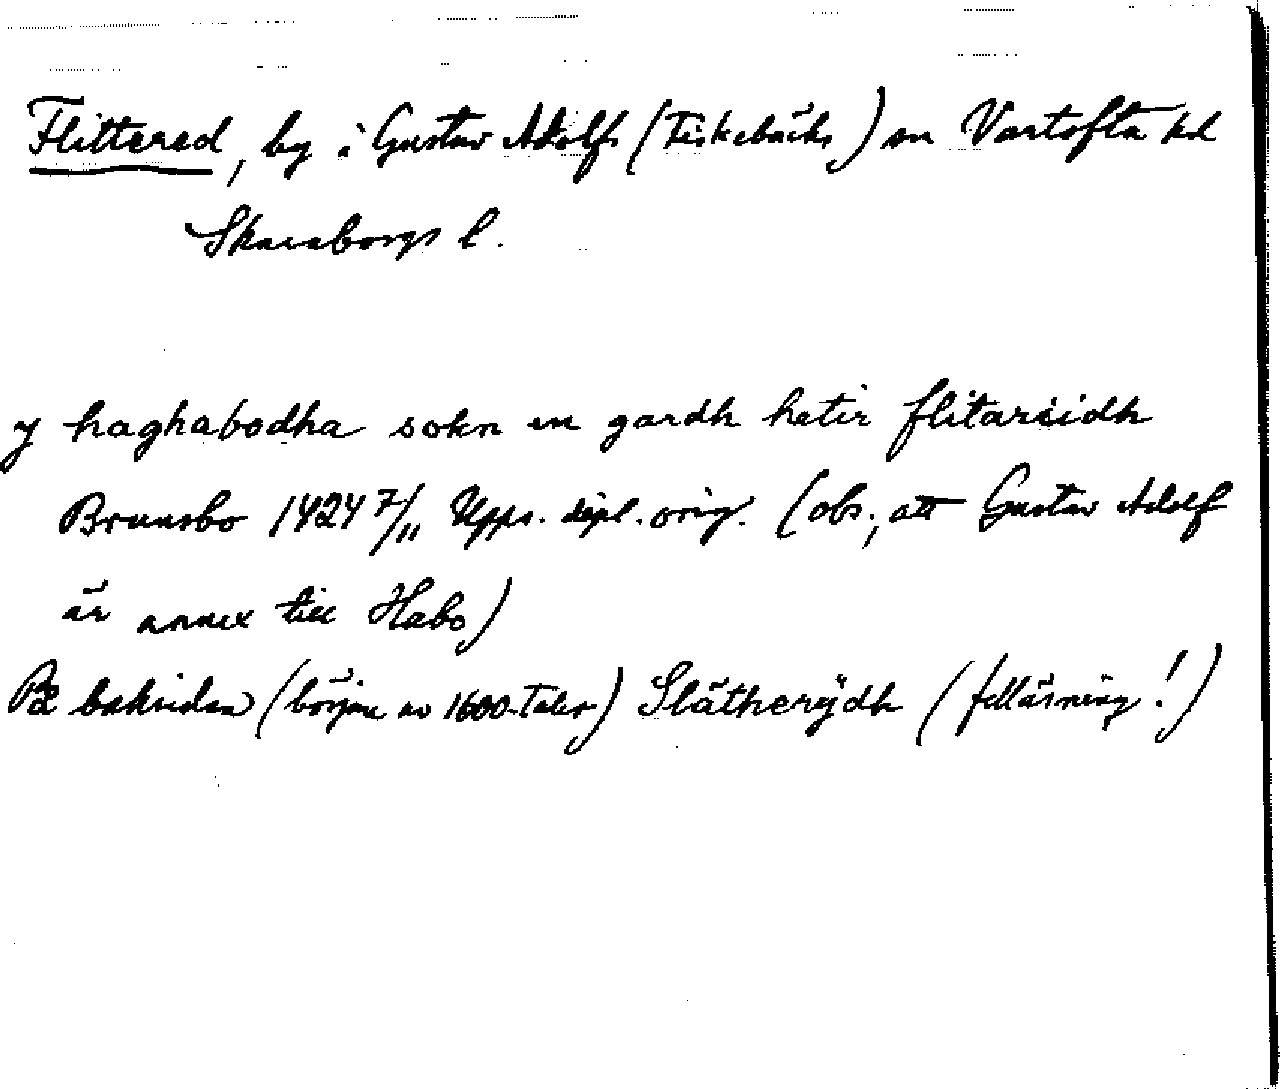 Flittered, by i Gustav Adolfs (Fiskebäcks) sn Vartofta hd
Skaraborgs l.
y haghabodha sokn en gardh hetir flitarüdh
Brunsbo 1424 7/11 Upps. dipl. orig. (obs., att Gustav Adolf
är annex till Habo)
På baksidan (början av 1600-talet) Slätherÿdh (felläsning!)